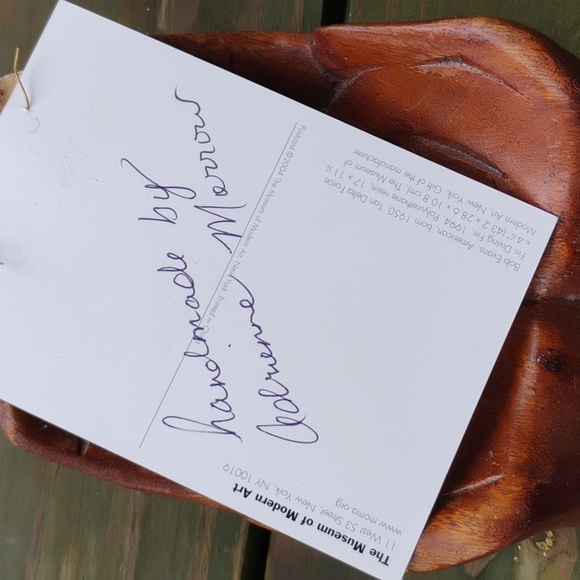 handmade by
Adrienne Morrow
Bob Evans. American, born 1950. Tan Delta Force
Fin Diving Fin. 1994. Polyurethane resin, 17 x 11 ¼
x 4 ¼" (43.2 x 28.6 x 10.8 cm). The Museum of
Modern Art, New York. Gift of the manufacturer
Postcard ©2004 The Museum of Modern Art, New York. Printed in
The Museum of Modern Art
11 West 53 Street, New York, NY 10019
www.moma.org